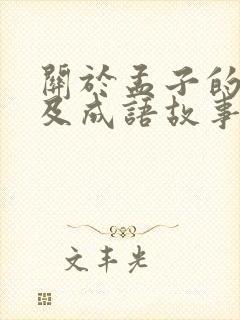 關於孟子的
及成語故事
文丰光